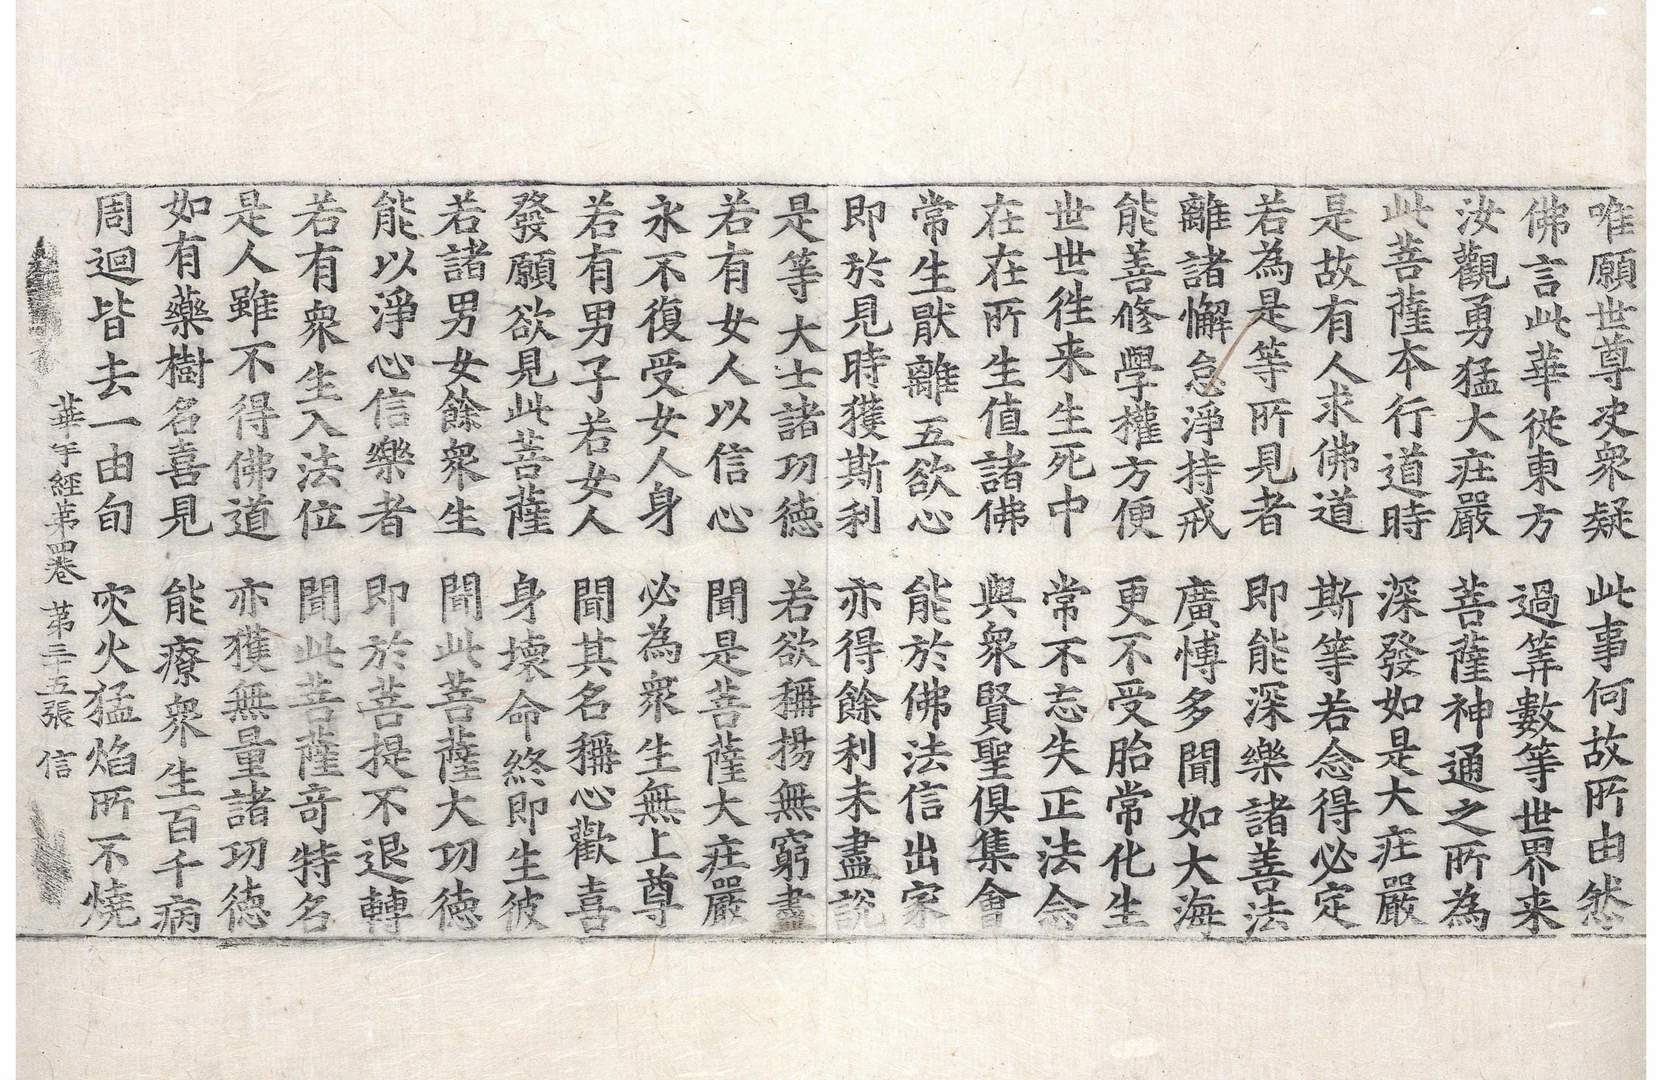 唯願世尊决衆疑　此事何故所由然
佛言此華從東方　過筭數等世界来
汝觀勇猛大疘嚴　菩薩神通之所為
此菩薩本行道時　深發如是大疘嚴
是故有人求佛道　斯等若念得必定
若為是等所見者　即能深樂諸善法
離諸懈怠淨持戒　廣博多聞如大海
能善修學權方便　更不受胎常化生
世世徃来生死中　常不忘失正法念
在在所生值諸佛　與衆賢聖俱集會
常生厭離五欲心　能於佛法信出家
即於見時獲斯利　亦得餘利未盡說
是等大士諸功德　若欲稱揚無窮盡
若有女人以信心　聞是菩薩大疘嚴
永不復受女人身　必為衆生無上尊
若有男子若女人　聞其名稱心歡喜
發願欲見此菩薩　身壞命終即生彼
若諸男女餘衆生　聞此菩薩大功德
能以淨心信樂者　即於菩提不退轉
若有衆生入法位　聞此菩薩竒特名
是人雖不得佛道　亦獲無量諸功德
如有藥樹名喜見　能療衆生百千病
周迴皆去一由旬　灾火猛焰所不燒
華手經第四卷　第三十五張　信